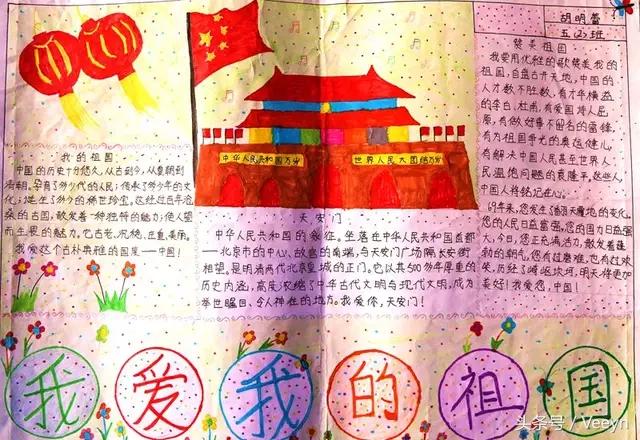 胡明雪
五(2)班
赞美祖国
我要用优雅的歌赞美我的
祖国,自盘古开天地,中国的
人才数不胜数,有才华横溢
的李白、杜甫,有爱国诗人屈
原,有做好事不留名的雷锋,
有为祖国争光的奥运健儿,
有解决中国人民甚至世界人
民温饱问题的袁隆平,这些人,
中国人将铭记在心。
69年来,您发生了翻天覆地的变化。
您的人民日益富强,您的国力日益强
大,今日,您正充满活力,散发着蓬
勃的朝气,您有过磨难,也有过欢
笑,历经了崎岖坎坷,明天将更加
美好!我爱您,中国!
中华人民共和国万岁
世界人民大团结万岁
我的祖国
中国的历史十分悠久,从古到今,从皇朝到
清朝,孕育了多少代的人民;传承了多少年的文
化;诞生了多少的稀世珍宝。这经过百年沧
桑的古国,散发着一种独特的魅力;使人望
而生畏的魅力。它古老、沉稳、庄重、美丽。
我爱这个古朴典雅的国度——中国!
天安门
中华人民共和国的象征。坐落在中华人民共和国首都
——北京市的中心、故宫的南端,与天安门广场隔长安街
相望,是明清两代北京皇城的正门。它以其500多年厚重的
历史内涵,高度浓缩了中华古代文明与现代文明,成为
举世瞩目、令人神往的地方。我爱你,天安门!
我爱我的祖国
头条号 / Veeyn